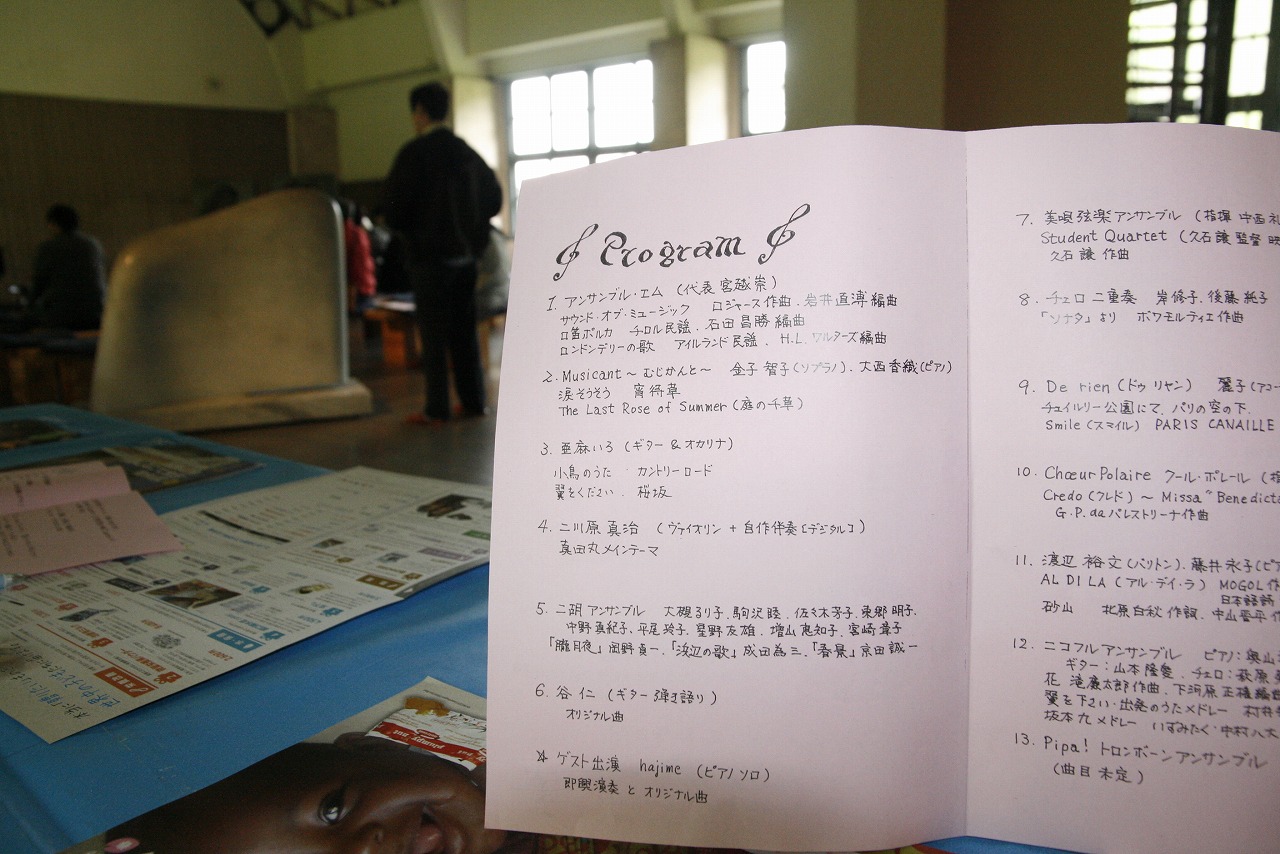 Program
1. アンサンブル・エム (代表 宮越崇)
サウンド・オブ・ミュージック ロジャース作曲．岩井直溥編曲
口笛ポルカ チロル民謡．石田昌勝編曲
ロンドンデリーの歌 アイルランド民謡．H.L.ワルターズ編曲
2. Musicant～むじかんと～ 金子智子(ソプラノ)．大西香織(ピアノ)
涙そうそう 宵待草
The Last Rose of Summer (庭の千草)
3. 亜麻いろ (ギター & オカリナ)
小鳥のうた カントリーロード
翼をください．桜坂
4. 二川原真治 (ヴァイオリン + 自作伴奏[デジタル])
真田丸メインテーマ
5. 二胡アンサンブル 大槻るり子．駒沢睦．佐々木芳子．東郷明子．
中野真紀子．平尾玲子．星野友雄．増山恵知子．宮崎章子
「朧月夜」岡野貞一．「浜辺の歌」成田為三．「春景」京田誠一
6. 谷仁 (ギター弾き語り)
オリジナル曲
☆ ゲスト出演 hajime (ピアノソロ)
即興演奏とオリジナル曲
7. 美唄弦楽アンサンブル (指揮 中西礼
Student Quartet (久石譲監督 映
久石譲 作曲
8. チェロ二重奏 岸修子．後藤純子
「ソナタ」より ボワモルティエ作曲
9. De rien (ドゥ リャン) 麗子(アコー
チュイルリー公園にて．パリの空の下．
Smile (スマイル) PARIS CANAILLE
10. Chœur Polaire クール・ポレール (指
Credo (クレド) ～ Missa "Benedicta
G.P.da パレストリーナ作曲
11. 渡辺裕文(バリトン)．藤井永子(ピア
AL DI LA (アル・デイ・ラ) MOGOL作
日本語詩
砂山 北原白秋作詞．中山晋平作
12. ニコフルアンサンブル ピアノ：奥山
ギター：山本隆愛．チェロ：萩原
花 滝廉太郎作曲．下河原正樹編曲
翼を下さい・出発のうたメドレー 村井
坂本九メドレー いずみたく・中村八大
13. Pipa! トロンボーンアンサンブル
(曲目未定)